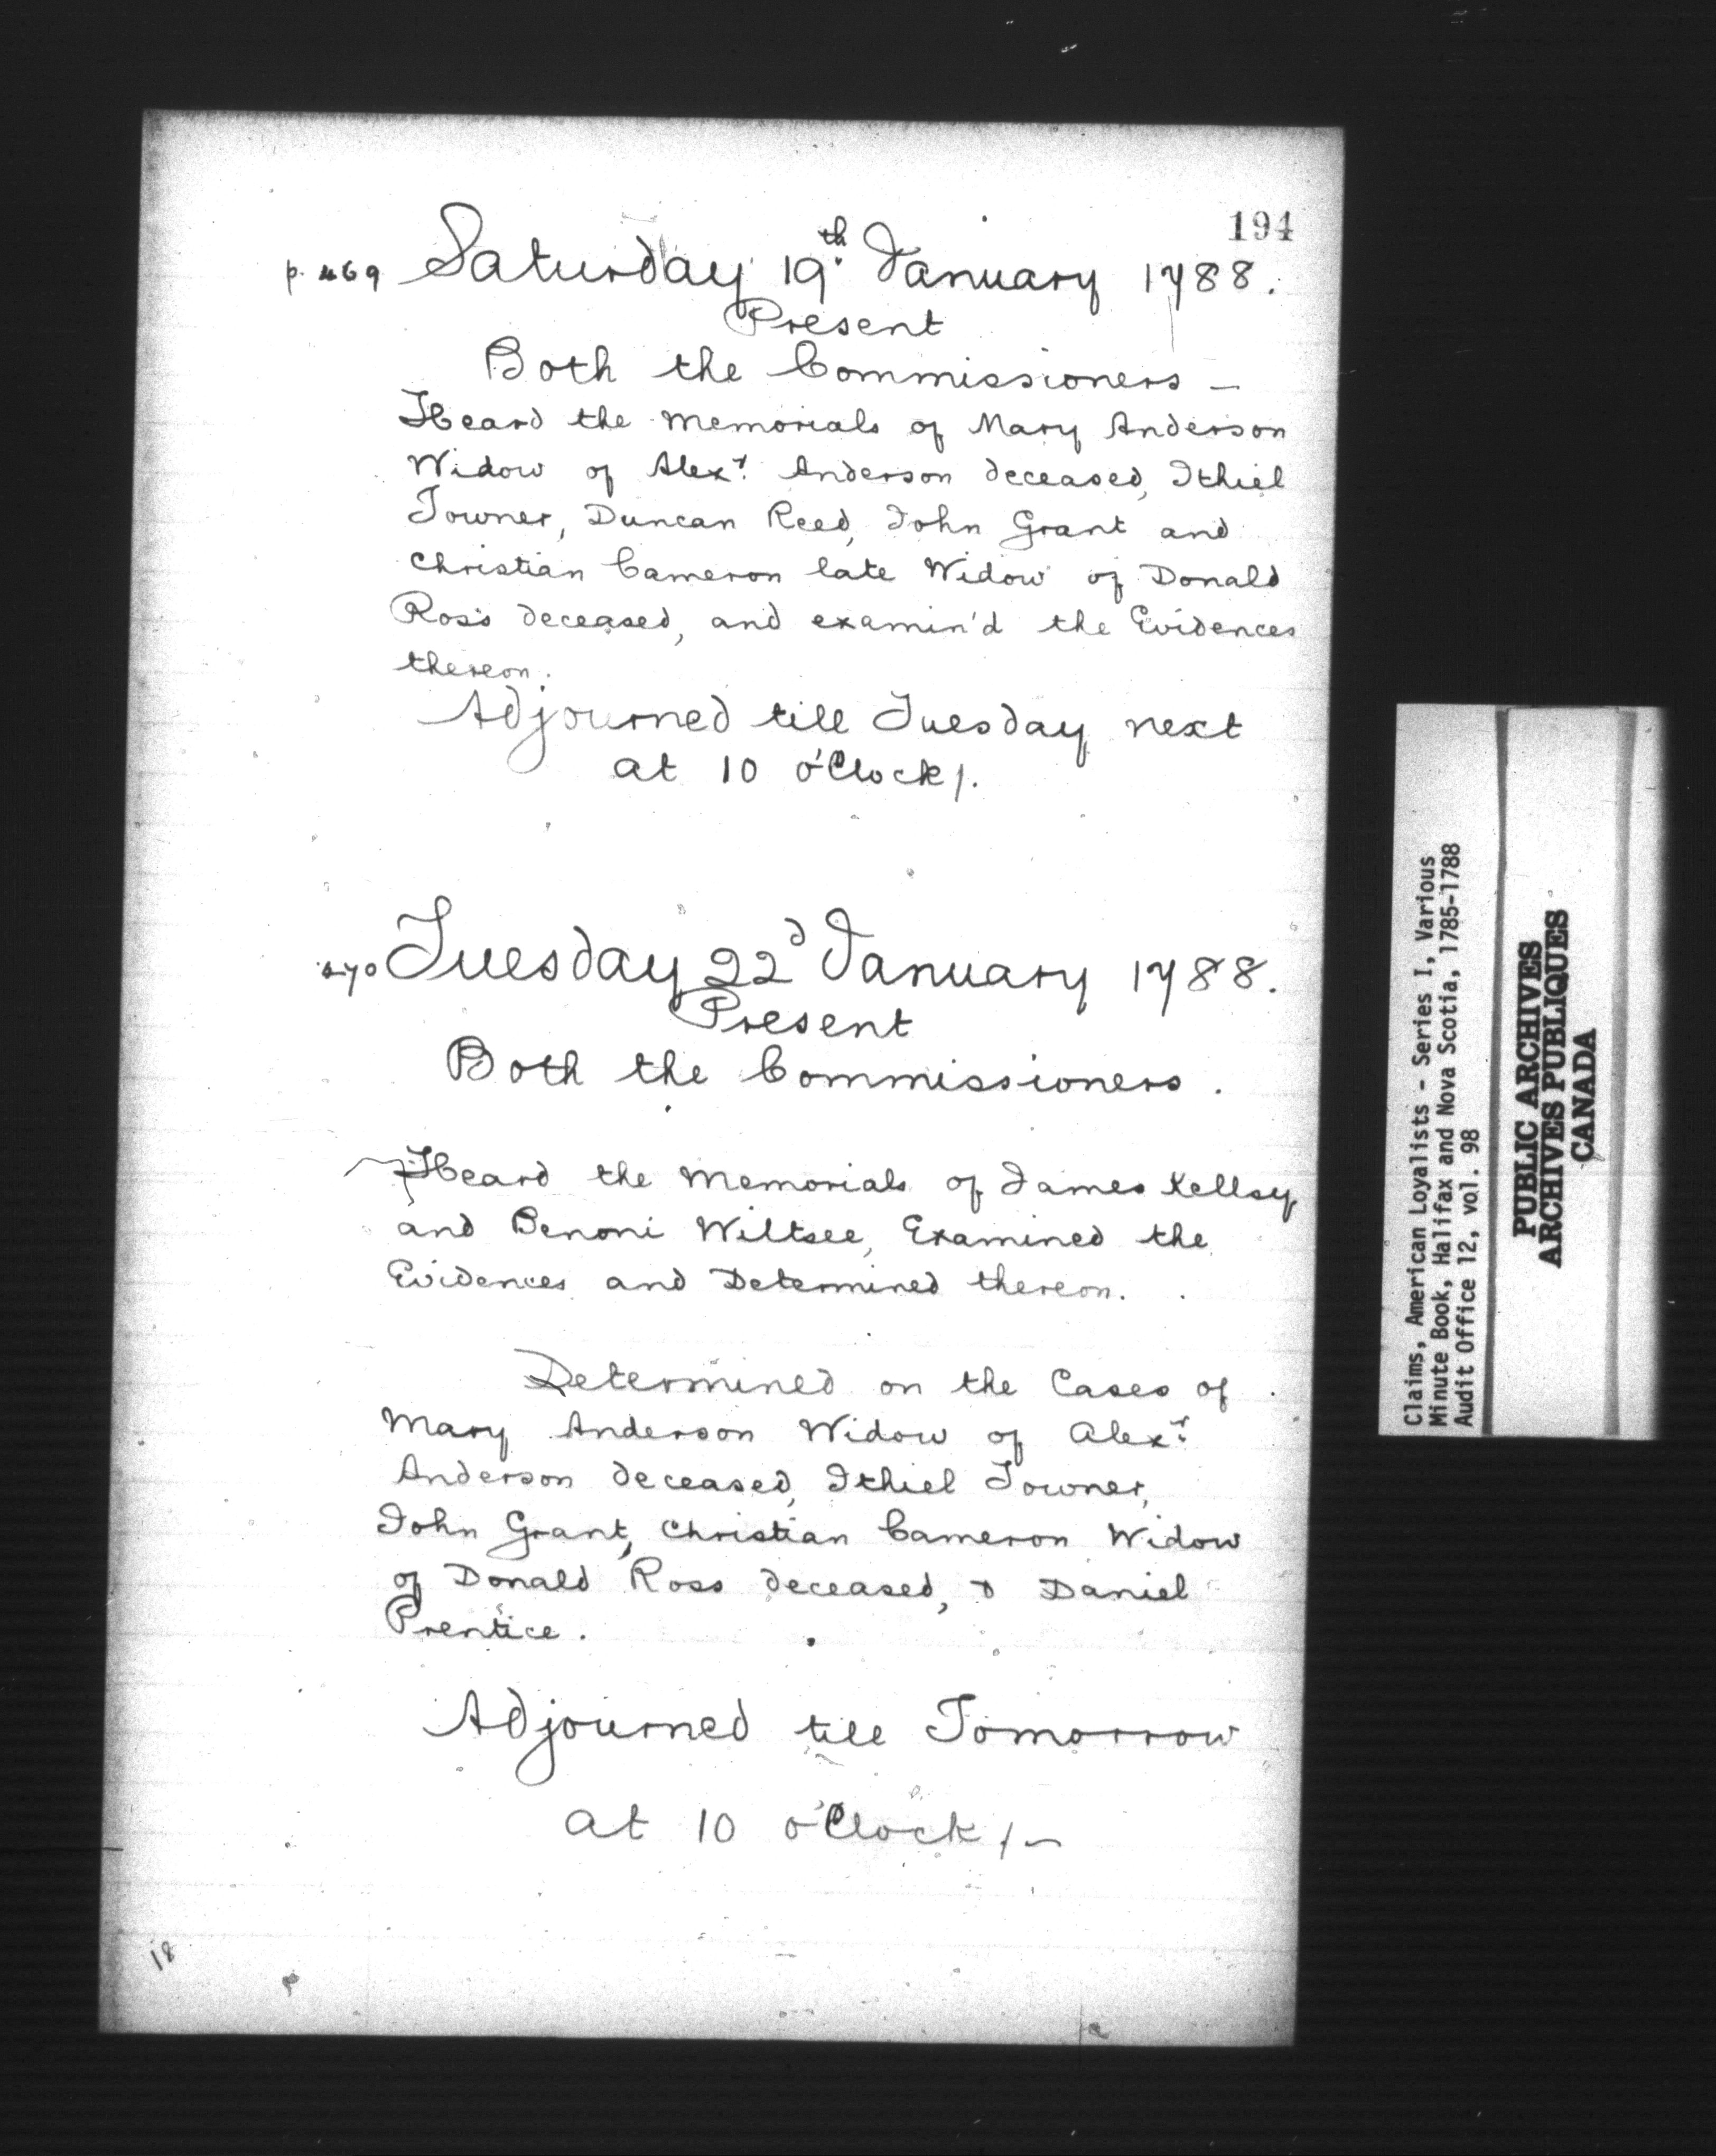 194
p. 469 Saturday 19th January 1788.
Present
Both the Commissioners —
Heard the memorials of Mary Anderson
Widow of Alexr. Anderson deceased, Ithiel
Towner, Duncan Reed, John Grant and
Christian Cameron late Widow of Donald
Ross deceased, and examin'd the Evidences
thereon.
Adjourned till Tuesday next
at 10 o'Clock/.
470 Tuesday 22d January 1788.
Present
Both the Commissioners.
Heard the memorials of James Kellsy
and Benoni Wiltsee, Examined the
Evidences and Determined thereon.
Determined on the Cases of
Mary Anderson Widow of Alexr.
Anderson deceased, Ithiel Towner,
John Grant, Christian Cameron Widow
of Donald Ross deceased, & Daniel
Prentice.
Adjourned till Tomorrow
at 10 o'Clock/—
18
Claims, American Loyalists - Series I, Various
Minute Book, Halifax and Nova Scotia, 1785-1788
Audit Office 12, vol. 98
PUBLIC ARCHIVES
ARCHIVES PUBLIQUES
CANADA